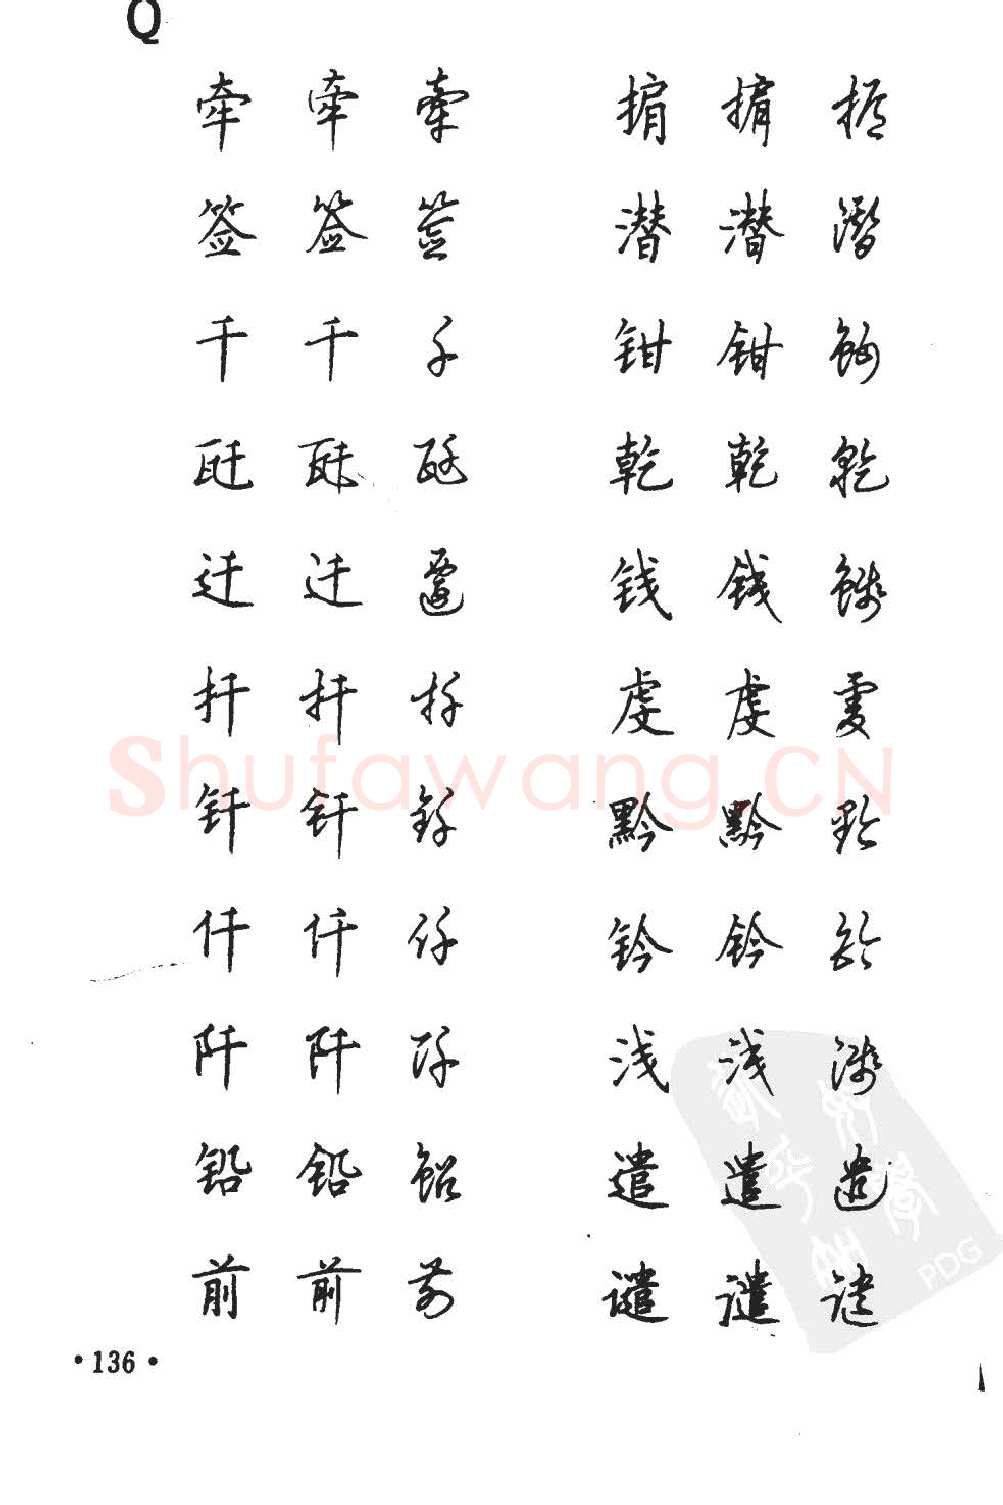 Q
牵 牵 牽 掮 掮 掮
签 签 签 潜 潜 潜
千 千 千 钳 钳 钳
瓩 瓩 瓩 乾 乾 乾
迁 迁 遷 钱 钱 钱
扦 扦 扦 虔 虔 虔
钎 钎 钎 黔 黔 黔
仟 仟 仟 钤 钤 钤
阡 阡 阡 浅 浅 浅
铅 铅 铅 遣 遣 遣
前 前 前 谴 谴 谴
·136·
Shufawang.CN
PDG